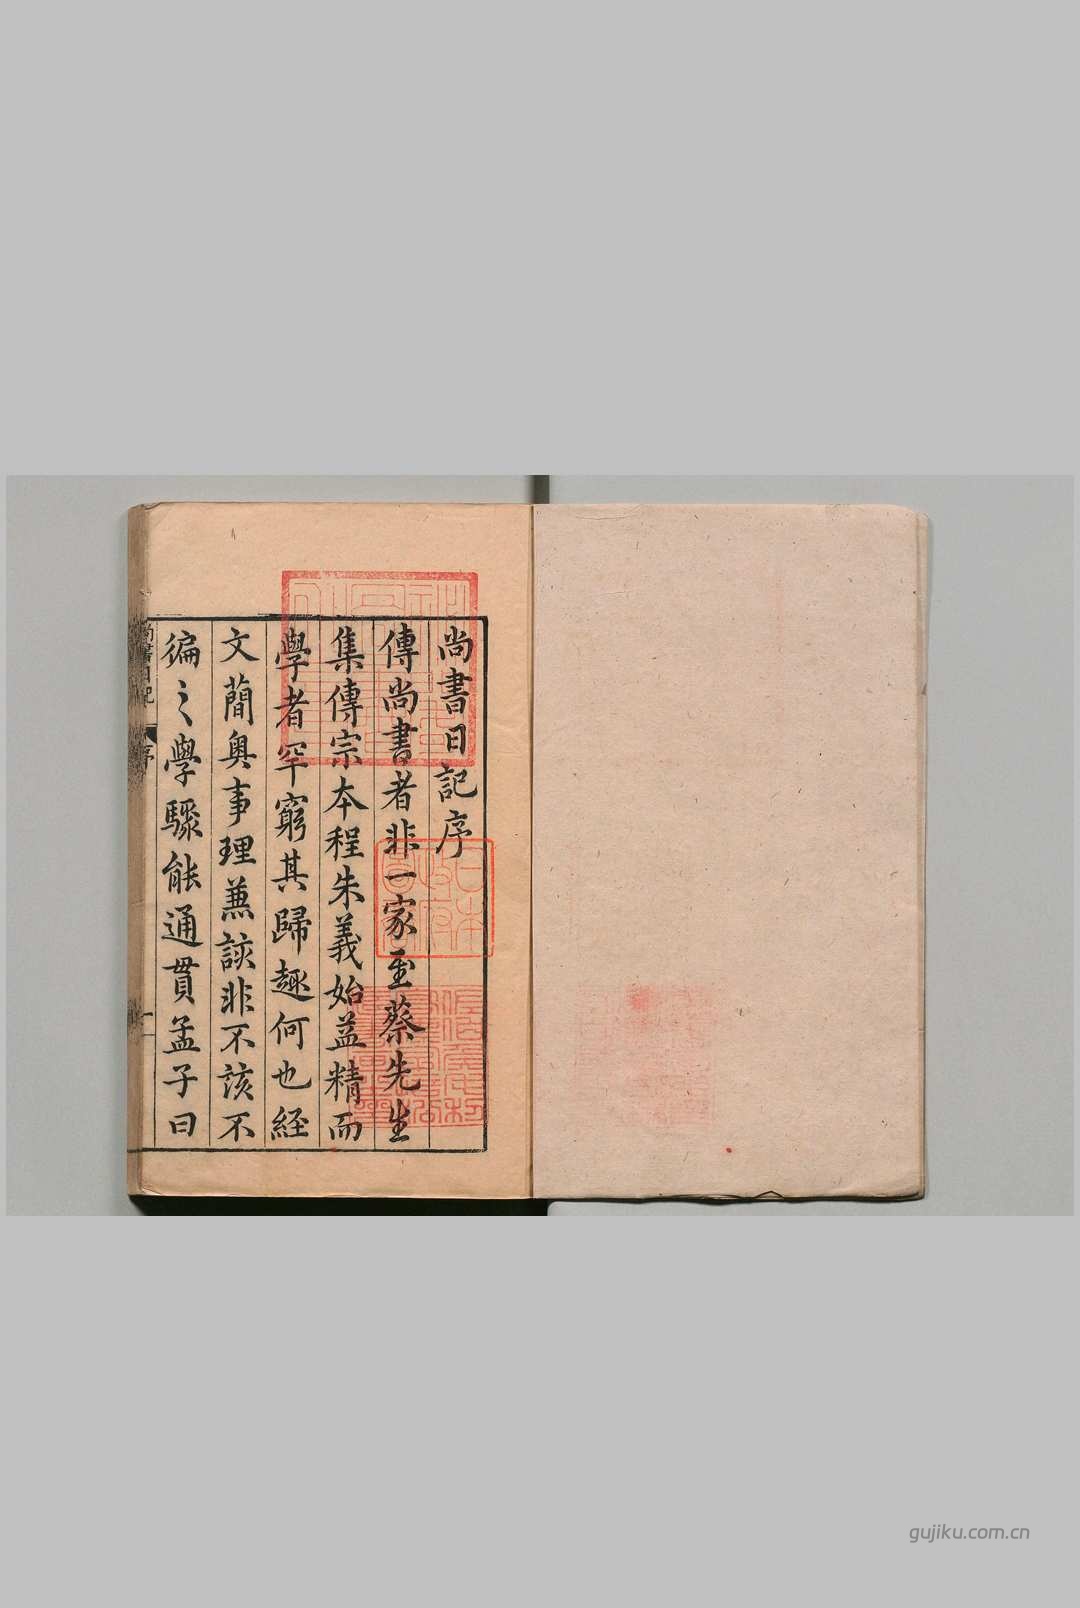 尚書日記序
傳尚書者非一家至蔡先生
集傳宗本程朱義始益精而
學者罕窮其歸趣何也経
文蕳奥事理兼該非不該不
徧之學驟能通貫孟子曰
尚書日記
序
一
gujiku.com.cn